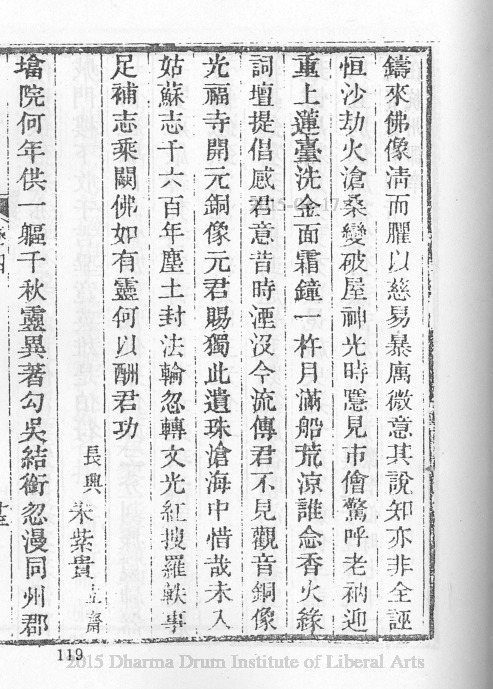 鑄來佛像清而臞以慈易暴寓微意其說知亦非全誣
恒沙劫火滄桑變破屋神光時隱見市儈驚呼老衲迎
重上蓮臺洗金面霜鐘一杵月滿船荒涼誰念香火緣
詞壇提倡感君意昔時湮沒今流傳君不見觀音銅像
光福寺開元銅像元君賜獨此遺珠滄海中惜哉未入
姑蘇志千六百年塵土封法輪忽轉文光紅搜羅軼事
足補志乘闕佛如有靈何以酬君功
長興 朱紫貴 立齋
墖院何年供一軀千秋靈異著勾吳結銜忽漫同州郡
119
2015 Dharma Drum Institute of Liberal Arts